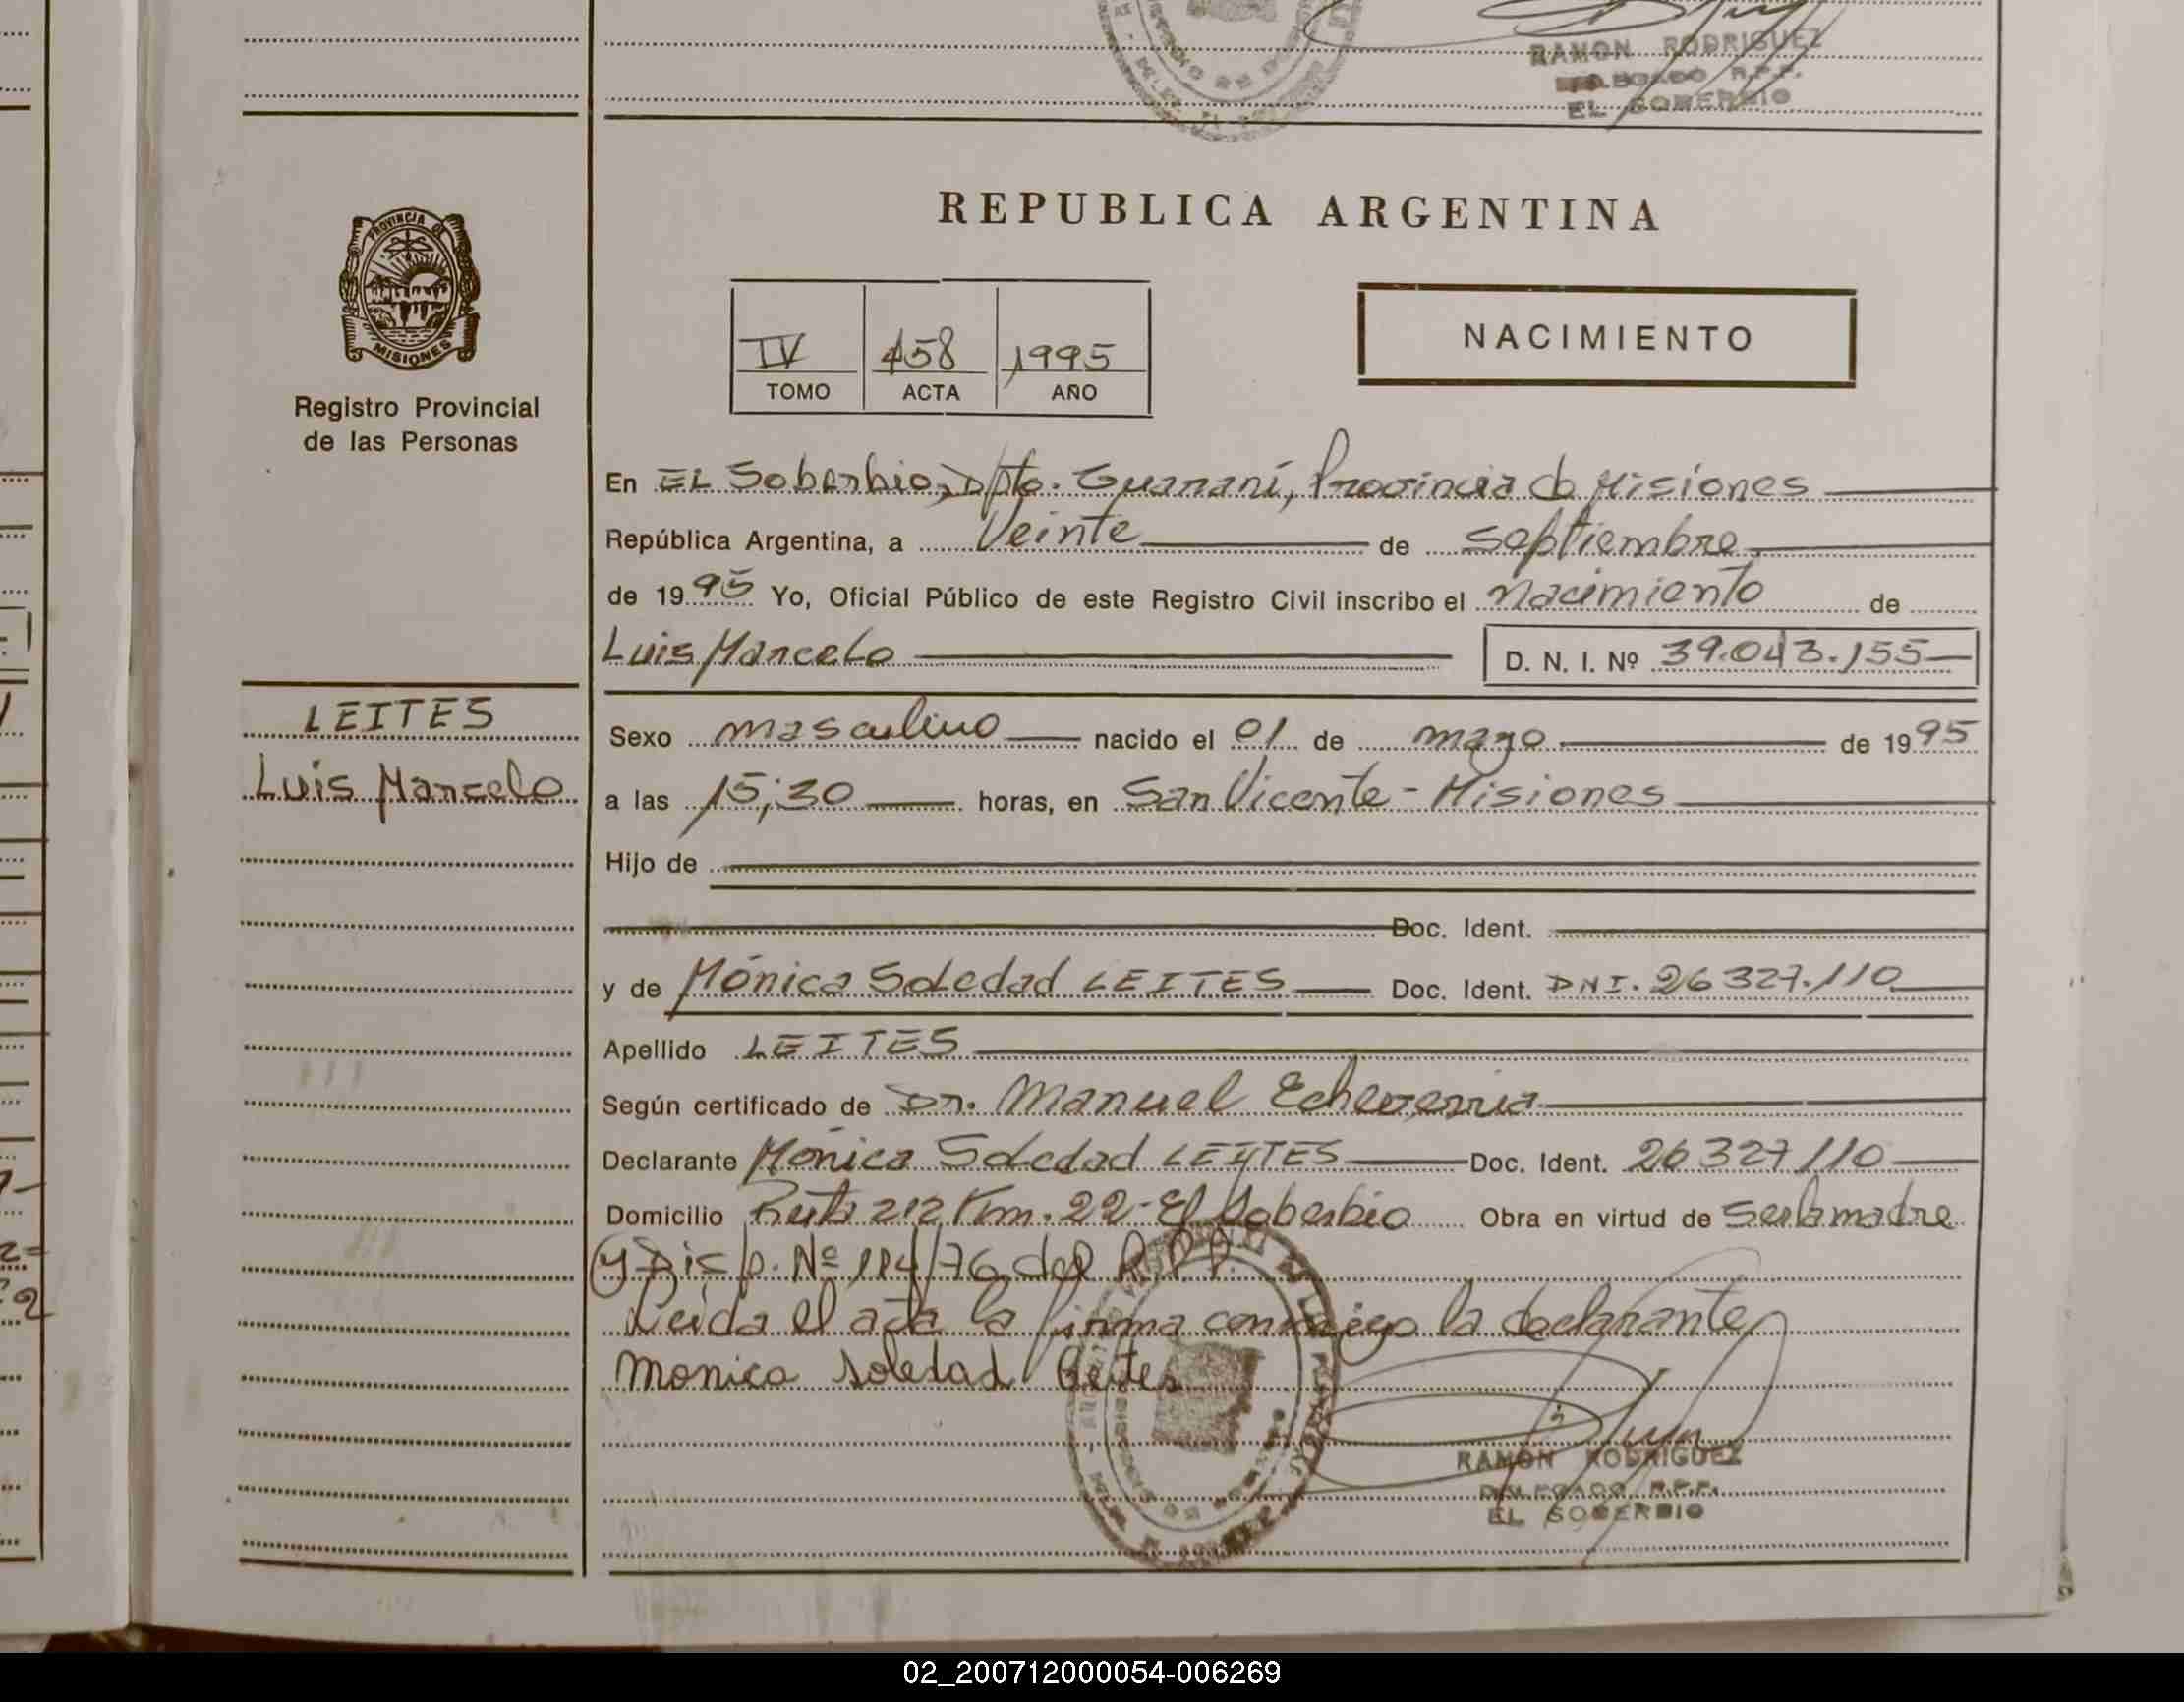 RAMON RODRIGUEZ
R.P.P.
EL SOBERBIO
PROVINCIA DE
MISIONES
Registro Provincial
de las Personas
REPUBLICA ARGENTINA
IV 458 1995
TOMO ACTA AÑO
NACIMIENTO
En EL Soberbio, Dpto. Guaraní, Provincia de Misiones
República Argentina, a Veinte de septiembre
de 1995 Yo, Oficial Público de este Registro Civil inscribo el Nacimiento de
Luis Marcelo D. N. I. Nº 39.043.155
LEITES
Luis Marcelo
Sexo masculino nacido el 01 de mayo de 1995
a las 15;30 horas, en San Vicente - Misiones
Hijo de
Doc. Ident.
y de Mónica Soledad LEITES Doc. Ident. DNI. 26 327.110
Apellido LEITES
Según certificado de Dr. Manuel Echeverria
Declarante Mónica Soledad LEITES Doc. Ident. 26 327 110
Domicilio Ruta 212 Km. 22 - El Soberbio Obra en virtud de Ser la madre
y Disp. Nº 114/76 del R.P.P.
Leida el acta la firma conmigo la declarante
Monica Soledad Leites
RAMON RODRIGUEZ
DELEGADO R.P.P.
EL SOBERBIO
02_200712000054-006269